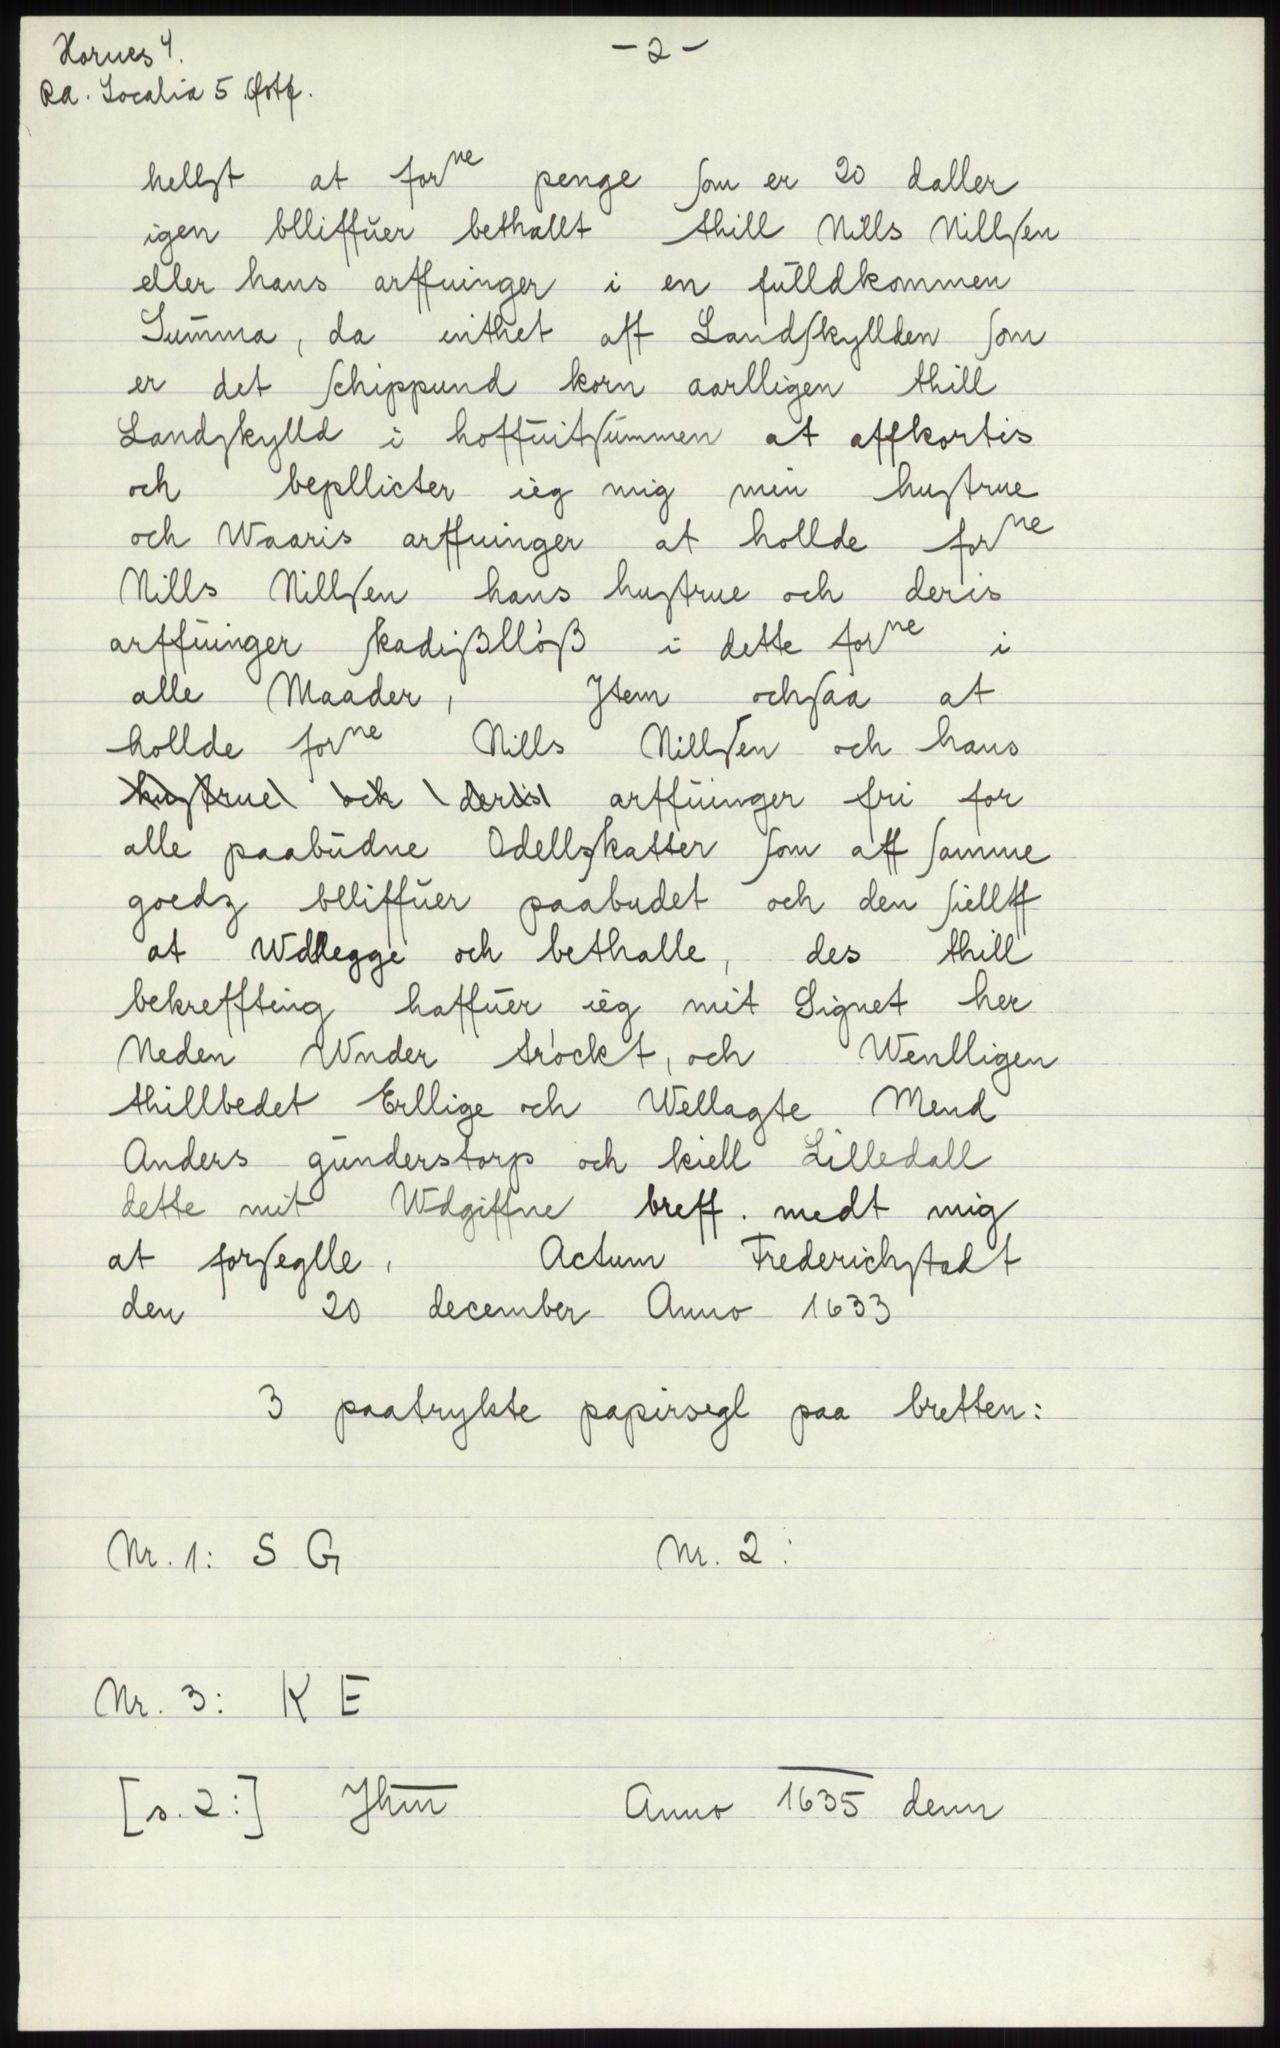 Hornes 4.
- 2 -
RA. Localia 5 Østf.
hellst at for^ne penge som er 20 daller
igen blliffuer bethallt thill Nills Nillsen
eller hans arffuinger i en fulldkommen
Summa, da inthet aff Landskyllden som
er det schippund korn aarlligen thill
Landskylld i hoffuitsummen at affkortis
och bepllicter ieg mig min hustrue
och Waaris arffuinger at hollde for^ne
Nills Nillsen hans hustrue och deris
arffuinger skadißlløß i dette for^ne i
alle Maader, Jtem ochsaa at
hollde for^ne Nills Nillsen och hans
hustrue och deris arffuinger fri for
alle paabudne Odellskatter som aff samme
goedz blliffuer paabudet och den siellff
at Wdllegge och bethalle, des thill
bekreffting haffuer ieg mit Signet her
Neden Wnder tröckt, och Wenlligen
thillbedet Erllige och Wellagte Mend
Anders gunderstorp och kiell Lilledall
dette mit Wdgiffne breff. medt mig
at forseglle, Actum Frederichstadt
den 20 december Anno 1633
3 paatrykte papirsegl paa bretten:
Nr. 1: S G Nr. 2:
Nr. 3: K E
[s. 2:] Jhm Anno 1635 denn